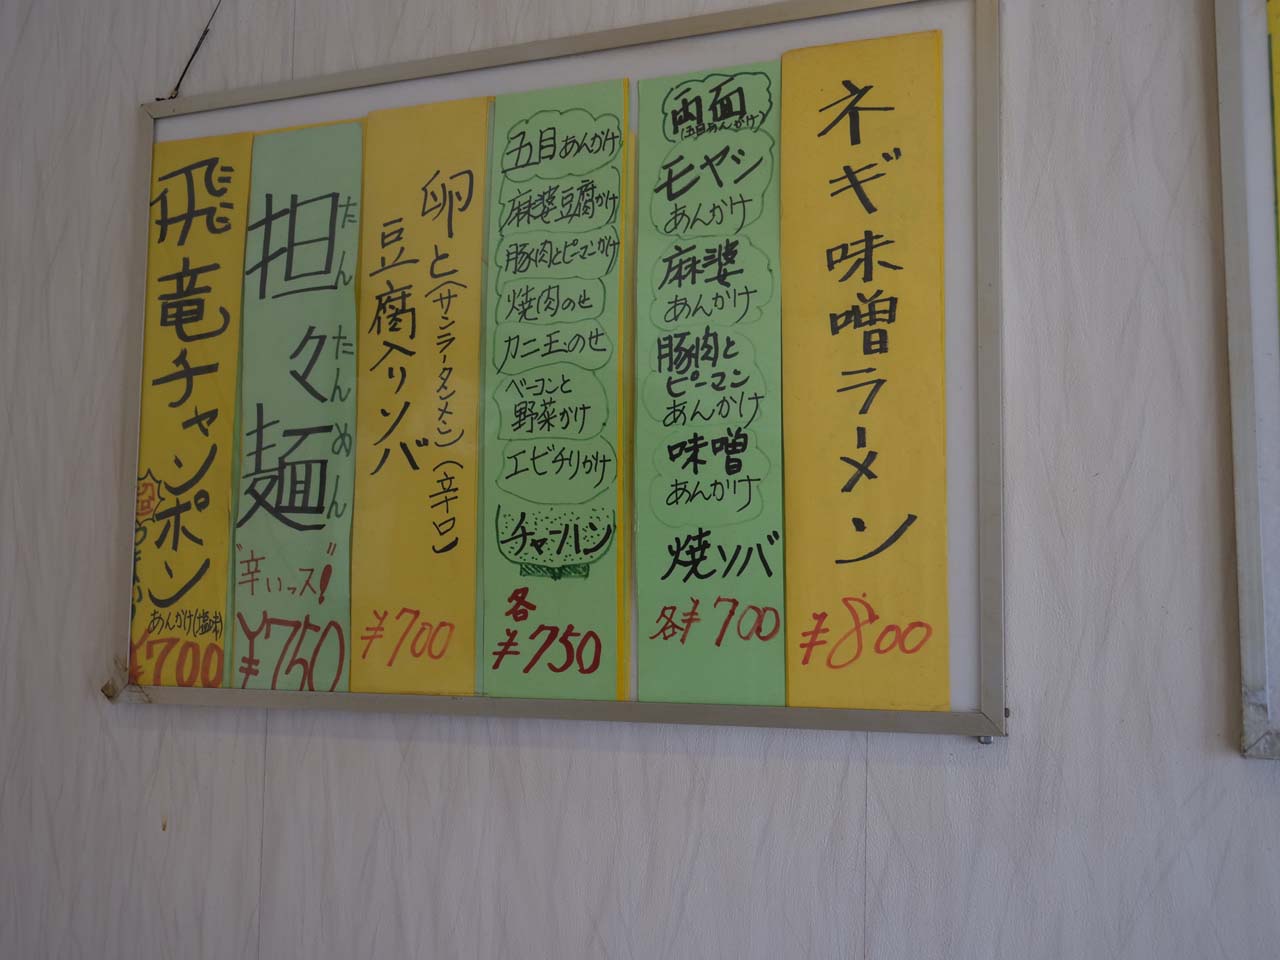 ネギ味噌ラーメン
¥800
両面
(五目あんかけ)
モヤシ
あんかけ
麻婆
あんかけ
豚肉と
ピーマン
あんかけ
味噌
あんかけ
焼ソバ
各¥700
五目あんかけ
麻婆豆腐かけ
豚肉とピーマンかけ
焼肉のせ
カニ玉のせ
ベーコンと
野菜かけ
エビチリかけ
チャーハン
各
¥750
卵と(サンラータンメン)(辛口)
豆腐入りソバ
¥700
担々麺
たんたんめん
"辛いっス!"
¥750
飛竜チャンポン
あんかけ(塩味)
¥700